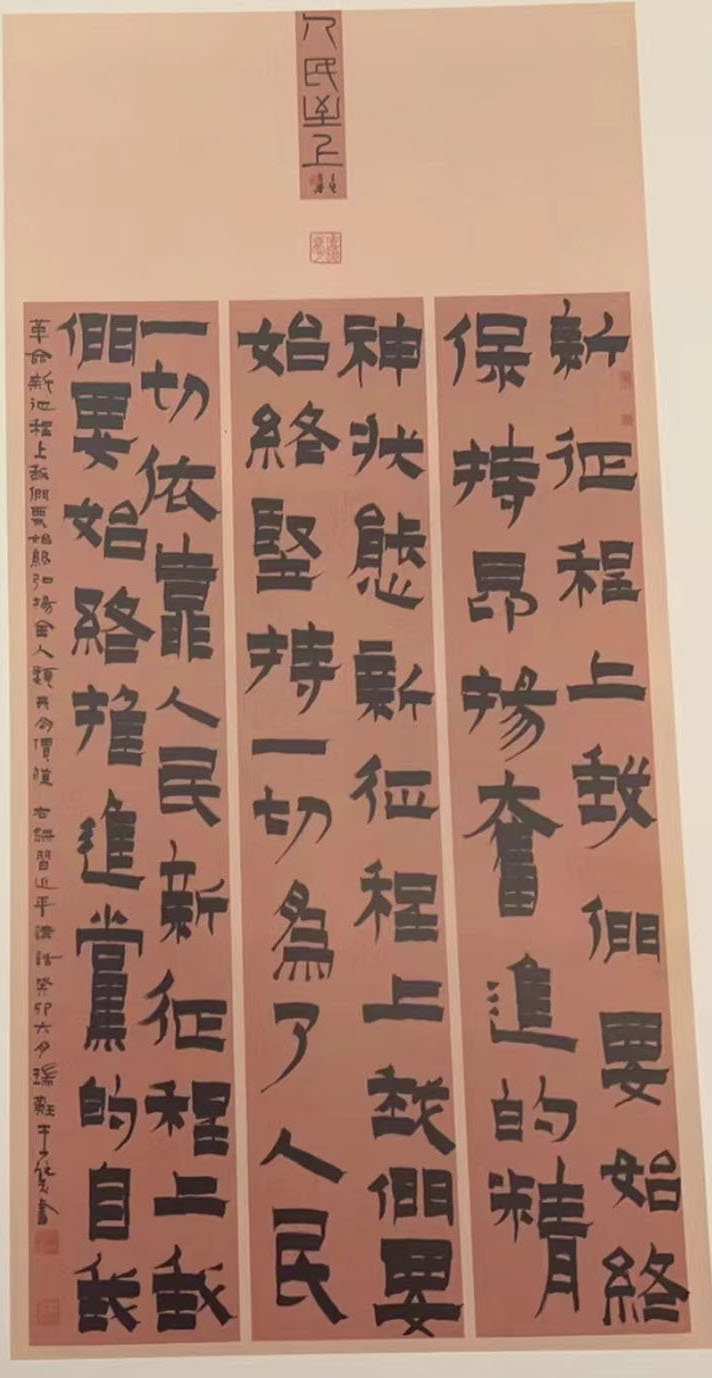 人民至上
新征程上我們要始終
保持昂揚奮進的精
神狀態新征程上我們要
始終堅持一切爲了人民
一切依靠人民新征程上我
們要始終推進黨的自我
革命新征程上我們要始終弘揚全人類共同價值 右錄習近平講話 癸卯六月 瑞 書